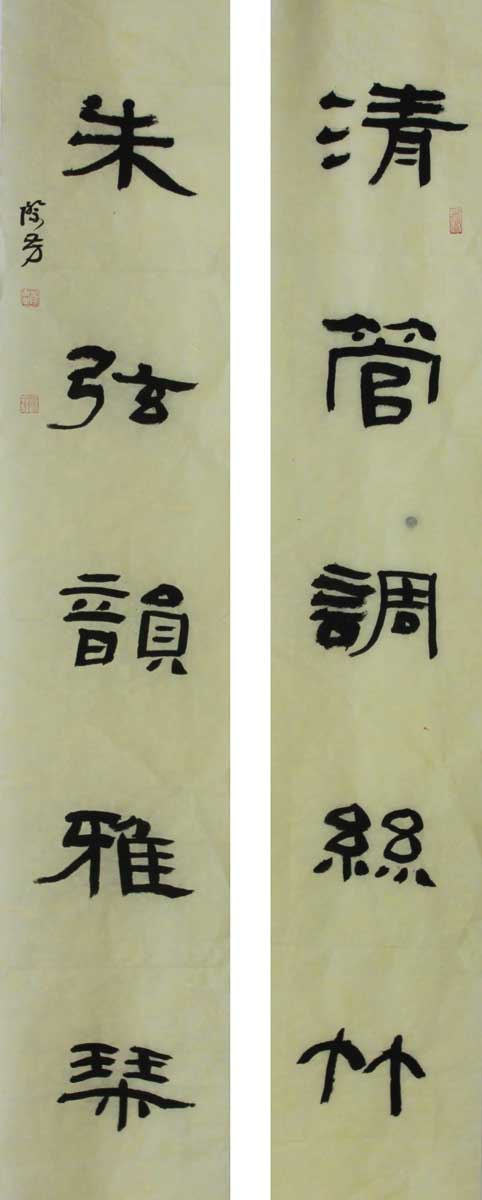 清管調絲竹
朱弦韻雅琹
際芳